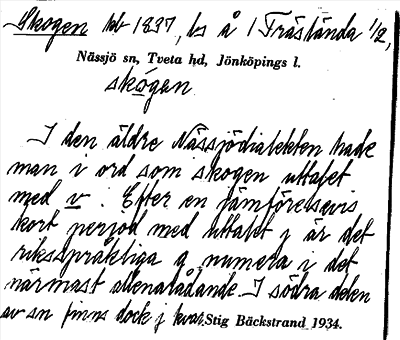 Skogen hb 1837, ls å 1 Träslända 1/2,
Nässjö sn, Tveta hd, Jönköpings l.
skógen
I den äldre Nässjödialekten hade
man i ord som skogen uttalet
med v. Efter en jämförelsevis
kort period med uttalet j är det
riksspråkliga g numera i det
närmast allenarådande. I södra delen
av sn finns dock j kvar. Stig Bäckstrand 1934.